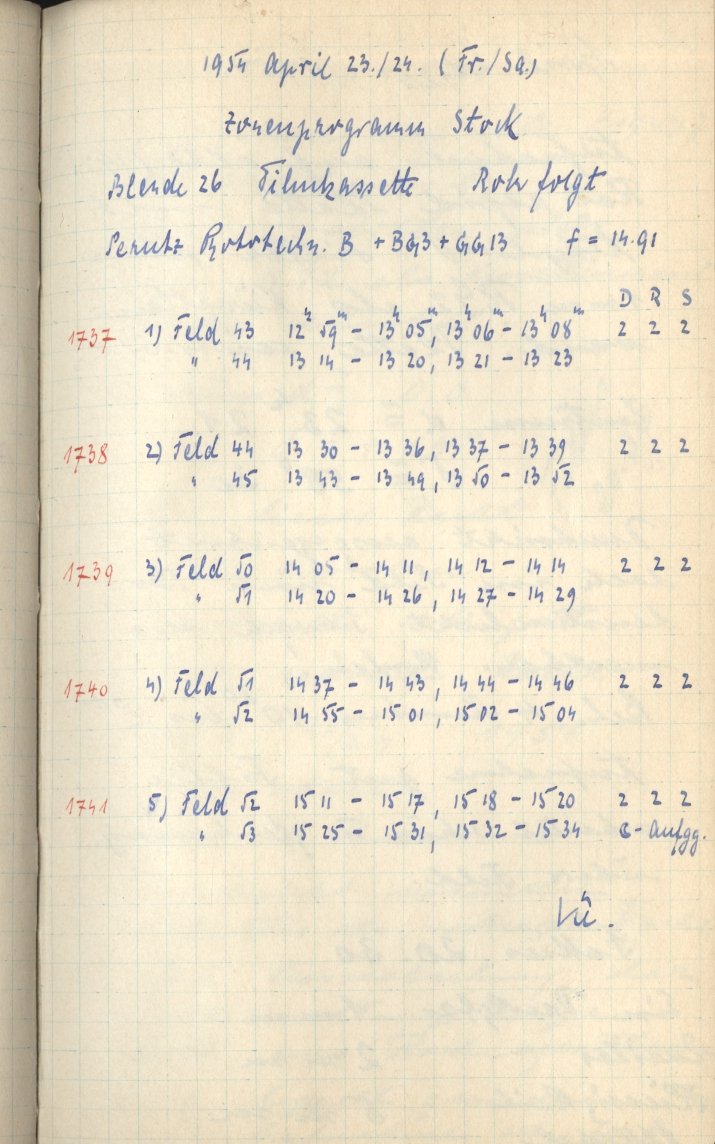 1954 April 23./24. (Fr./Sa.)
Zonenprogramm Stock
Blende 26 Filmkassette Rohr folgt
Perutz Phototechn. B + BG3 + GG13 f = 14.91
D R S
1737 1) Feld 43 12ʰ 59ᵐ – 13ʰ 05ᵐ, 13ʰ 06ᵐ – 13ʰ 08ᵐ 2 2 2
" 44 13 14 – 13 20, 13 21 – 13 23
1738 2) Feld 44 13 30 – 13 36, 13 37 – 13 39 2 2 2
" 45 13 43 – 13 49, 13 50 – 13 52
1739 3) Feld 50 14 05 – 14 11, 14 12 – 14 14 2 2 2
" 51 14 20 – 14 26, 14 27 – 14 29
1740 4) Feld 51 14 37 – 14 43, 14 44 – 14 46 2 2 2
" 52 14 55 – 15 01, 15 02 – 15 04
1741 5) Feld 52 15 11 – 15 17, 15 18 – 15 20 2 2 2
" 53 15 25 – 15 31, 15 32 – 15 34 C - Aufgg.